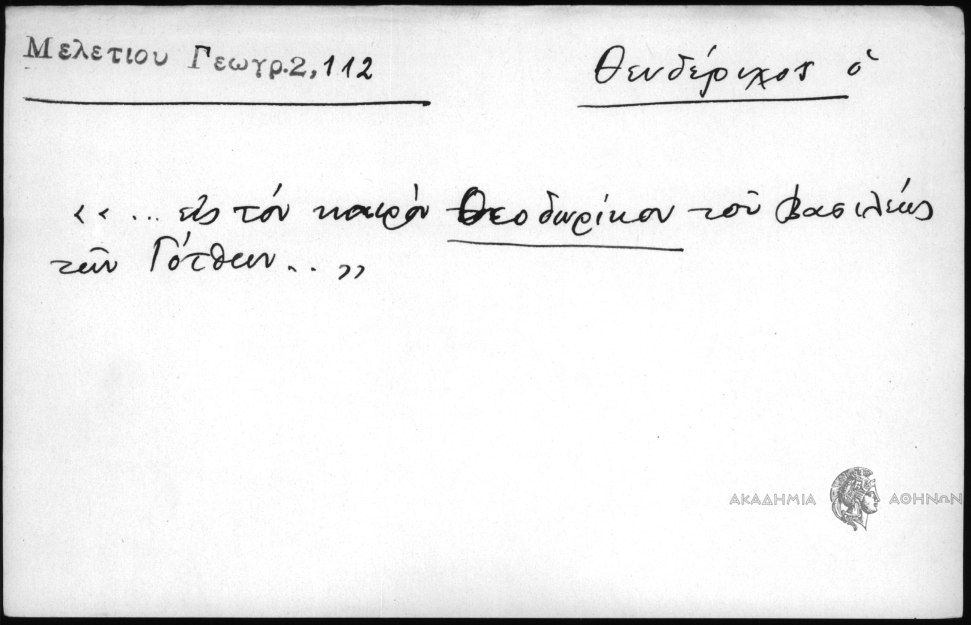 Μελετιου Γεωγρ.2,112
Θευδέριχος ὁ
«... εἰς τόν καιρόν Θεοδωρίκου τοῦ βασιλέως
τῶν Γότθων...»
ΑΚΑΔΗΜΙΑ ΑΘΗΝΩΝ